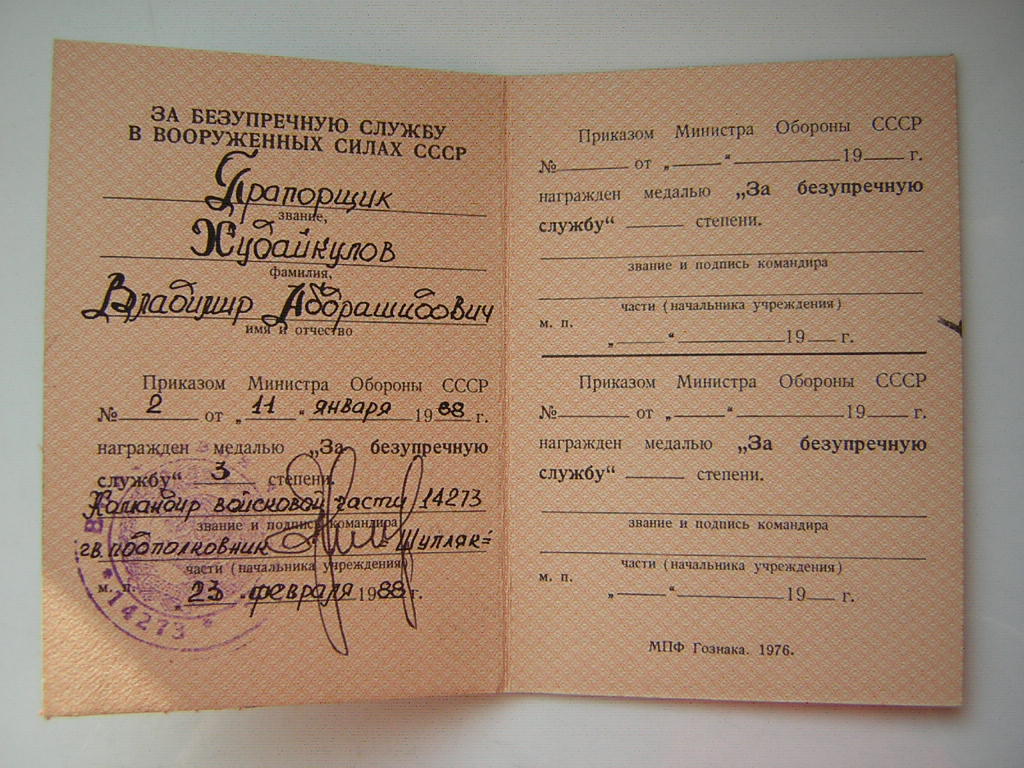 ЗА БЕЗУПРЕЧНУЮ СЛУЖБУ
В ВООРУЖЕННЫХ СИЛАХ СССР
Прапорщик
звание,
Худайкулов
фамилия,
Владимир Абдрашидович
имя и отчество
Приказом Министра Обороны СССР
№ 2 от „ 11 “ января 1988 г.
награжден медалью „За безупречную
службу“ 3 степени.
Командир войсковой части 14273
звание и подпись командира
гв. подполковник =Шупляк=
части (начальника учреждения)
м. п. „ 23 “ февраля 1988 г.
* 14273 *
Приказом Министра Обороны СССР
№ от „ “ 19 г.
награжден медалью „За безупречную
службу“ степени.
звание и подпись командира
части (начальника учреждения)
м. п.
„ “ 19 г.
Приказом Министра Обороны СССР
№ от „ “ 19 г.
награжден медалью „За безупречную
службу“ степени.
звание и подпись командира
части (начальника учреждения)
м. п.
„ “ 19 г.
МПФ Гознака. 1976.